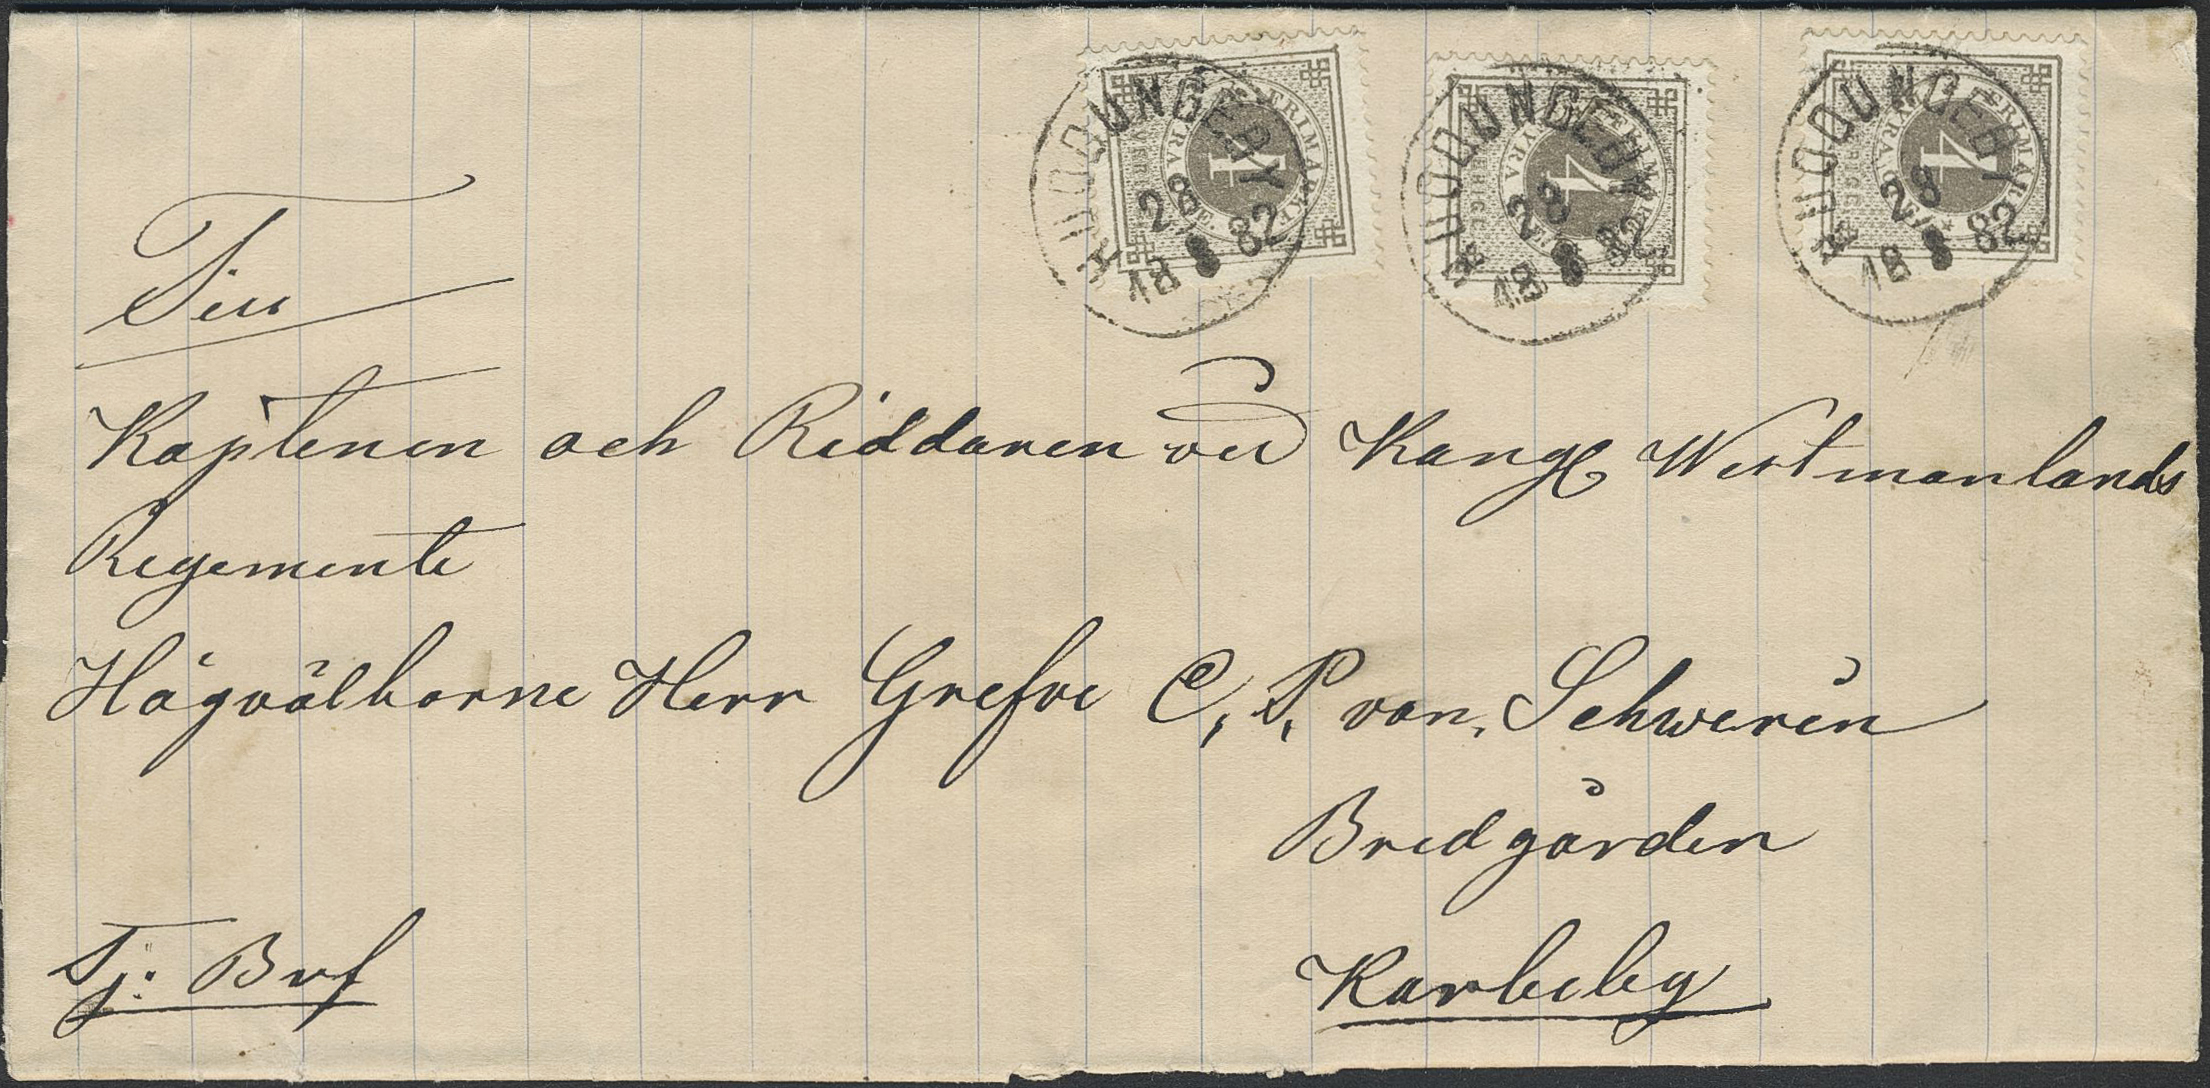 HUDDUNGEBY
28
18 8 82
HUDDUNGEBY
28
18 8 82
HUDDUNGEBY
28
18 8 82
FRIMÄRKE
SVERIGE
FYRA
4
FRIMÄRKE
SVERIGE
FYRA
4
FRIMÄRKE
SVERIGE
FYRA
4
Till
Kaptenen och Riddaren vid Kongl Westmanlands
Regemente
Högvälborne Herr Grefve C, P. von, Schwerin
Bredgården
Karbeby
Tj: Bref